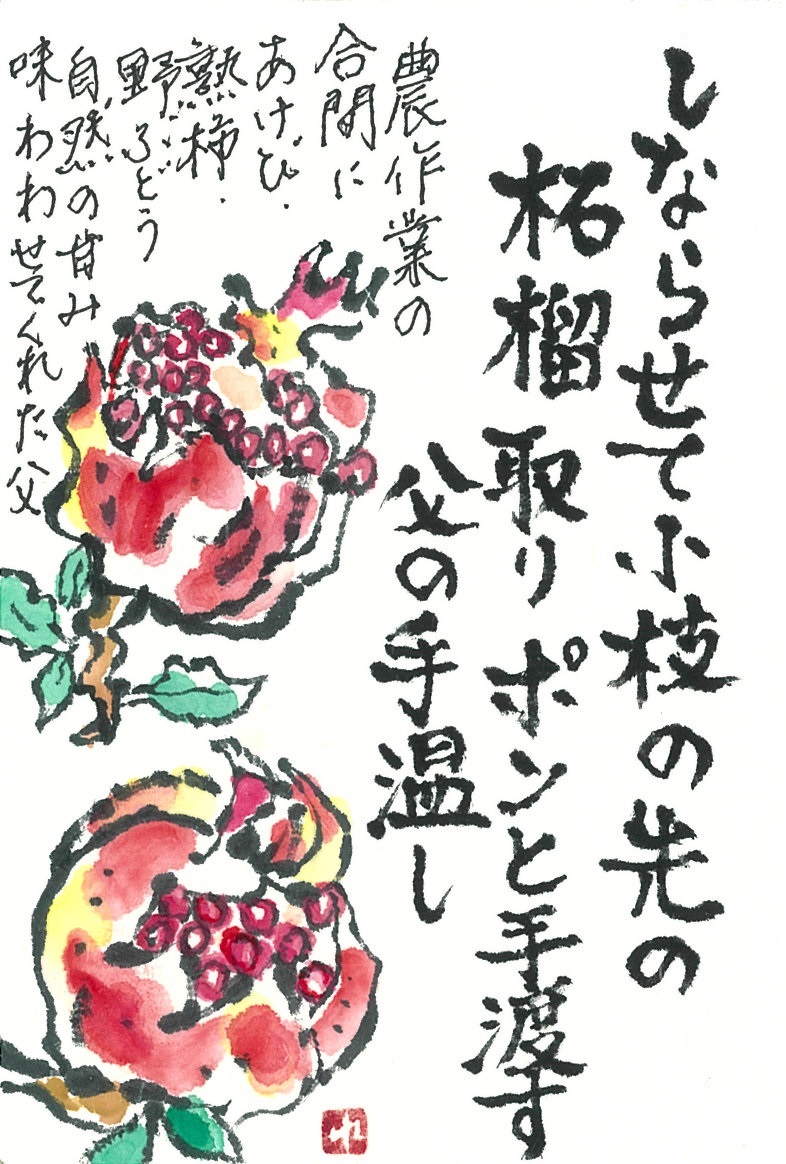 しならせて小枝の先の
柘榴取りポンと手渡す
父の手温し
農作業の
合間に
あけび・
熟柿・
野ぶどう
自然の甘み
味わわせてくれた父
れ